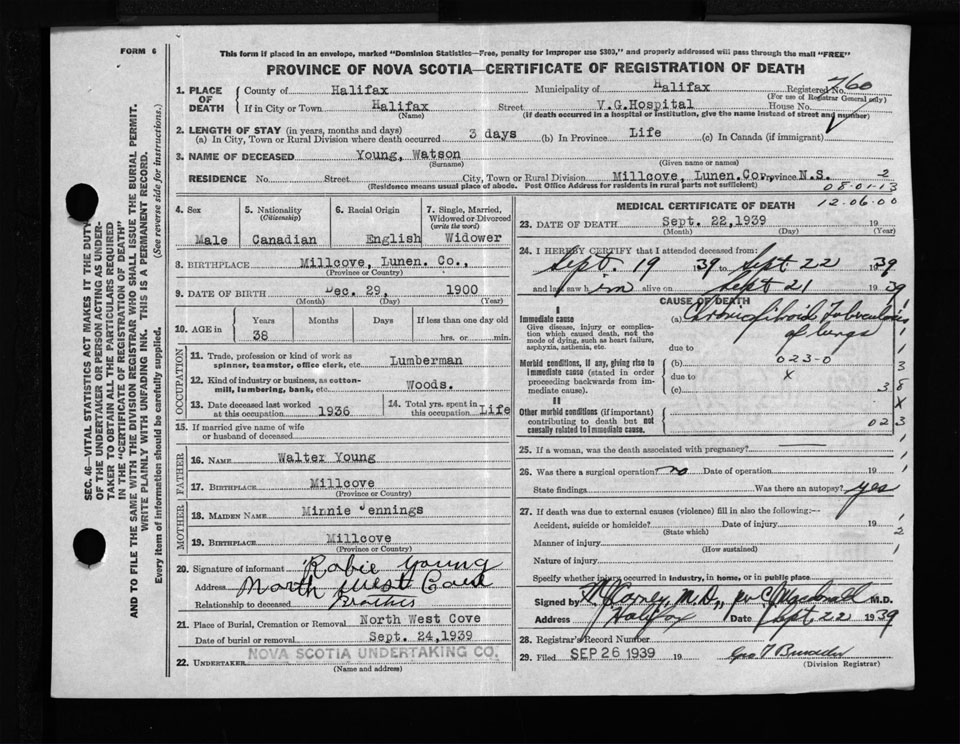 FORM 6
This form if placed in an envelope, marked "Dominion Statistics—Free, penalty for improper use $300," and properly addressed will pass through the mail "FREE"
PROVINCE OF NOVA SCOTIA—CERTIFICATE OF REGISTRATION OF DEATH
1. PLACE OF DEATH County of Halifax Municipality of Halifax Registered No. 760
(For use of Registrar General only)
If in City or Town Halifax Street V.G.Hospital House No.
(Name) (If death occurred in a hospital or institution, give the name instead of street and number)
2. LENGTH OF STAY (in years, months and days)
(a) In City, Town or Rural Division where death occurred 3 days (b) In Province Life (c) In Canada (if immigrant)
3. NAME OF DECEASED Young, Watson
(Surname) (Given name or names)
RESIDENCE No. Street City, Town or Rural Division Millcove, Lunen. Co. Province N.S. 2
(Residence means usual place of abode. Post Office Address for residents in rural parts not sufficient) 08-01-13
12-06-00
4. Sex 5. Nationality (Citizenship) 6. Racial Origin 7. Single, Married, Widowed or Divorced (write the word)
Male Canadian English Widower
8. BIRTHPLACE Millcove, Lunen. Co.,
(Province or Country)
9. DATE OF BIRTH Dec. 29, 1900
(Month) (Day) (Year)
10. AGE in Years Months Days If less than one day old
38 hrs. or min.
OCCUPATION
11. Trade, profession or kind of work as spinner, teamster, office clerk, etc. Lumberman
12. Kind of industry or business, as cotton-mill, lumbering, bank, etc. Woods.
13. Date deceased last worked at this occupation 1936 14. Total yrs. spent in this occupation Life
15. If married give name of wife or husband of deceased
FATHER
16. NAME Walter Young
17. BIRTHPLACE Millcove
(Province or Country)
MOTHER
18. MAIDEN NAME Minnie Jennings
19. BIRTHPLACE Millcove
(Province or Country)
20. Signature of informant Rabie Young
Address North West Cove
Relationship to deceased Brother
21. Place of Burial, Cremation or Removal North West Cove
Date of burial or removal Sept. 24,1939
22. UNDERTAKER NOVA SCOTIA UNDERTAKING CO.
(Name and address)
MEDICAL CERTIFICATE OF DEATH
23. DATE OF DEATH Sept. 22,1939 19
(Month) (Day) (Year)
24. I HEREBY CERTIFY that I attended deceased from:
Sept. 19 39 to Sept 22 1939
and last saw him alive on Sept 21 1939
CAUSE OF DEATH
I
Immediate cause (a) Chronic fibroid Tuberculosis
Give disease, injury or complication which caused death, not the mode of dying, such as heart failure, asphyxia, asthenia, etc. of lungs
due to
Morbid conditions, if any, giving rise to immediate cause (stated in order proceeding backwards from immediate cause). (b) 023-0 3
due to X
(c) 38
II
X
Other morbid conditions (if important) contributing to death but not causally related to immediate cause. 023
25. If a woman, was the death associated with pregnancy?
26. Was there a surgical operation? no Date of operation 19
State findings Was there an autopsy? yes
27. If death was due to external causes (violence) fill in also the following:—
Accident, suicide or homicide? Date of injury 19
(State which) 2
Manner of injury
(How sustained)
Nature of injury
Specify whether injury occurred in industry, in home, or in public place
Signed by M.D., per C. Macdonald M.D.
Address Halifax Date Sept 22 1939
28. Registrar's Record Number
29. Filed SEP 26 1939 19
(Division Registrar)
SEC. 46—VITAL STATISTICS ACT MAKES IT THE DUTY
OF THE UNDERTAKER OR PERSON ACTING AS UNDER-
TAKER TO OBTAIN ALL THE PARTICULARS REQUIRED
IN THE "CERTIFICATE OF REGISTRATION OF DEATH"
AND TO FILE THE SAME WITH THE DIVISION REGISTRAR WHO SHALL ISSUE THE BURIAL PERMIT.
WRITE PLAINLY WITH UNFADING INK. THIS IS A PERMANENT RECORD.
Every item of information should be carefully supplied. (See reverse side for instructions.)